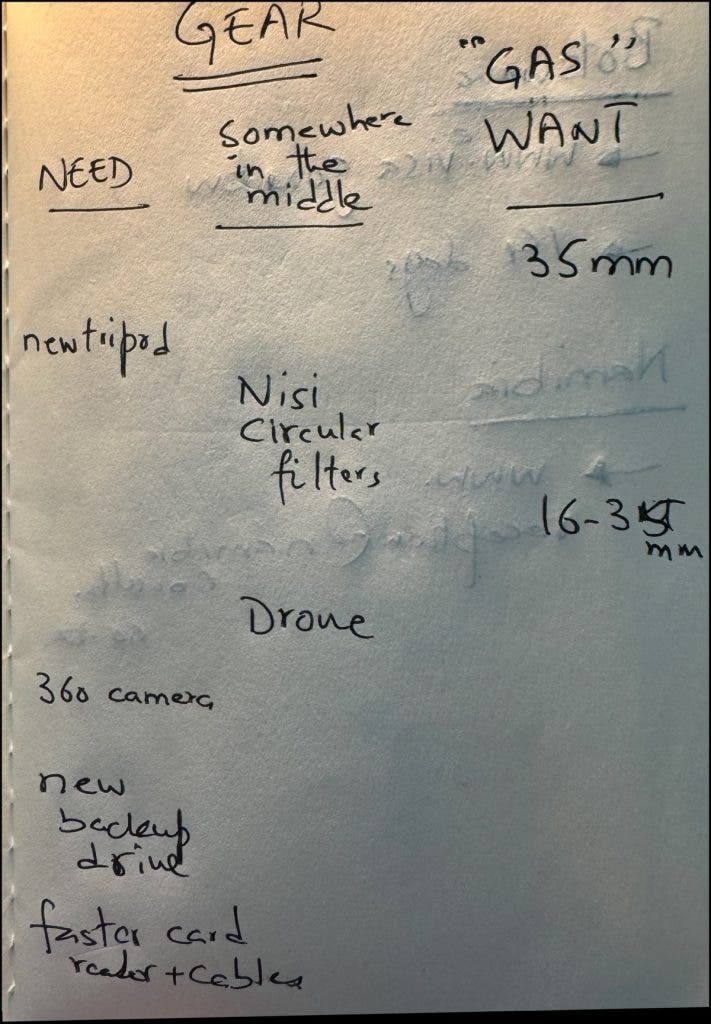 GEAR
"GAS"
WANT
somewhere
in the
middle
NEED
35mm
new tripod
Nisi
Circular
filters
16-35
mm
Drone
360 camera
new
backup
drive
faster card
reader + cables